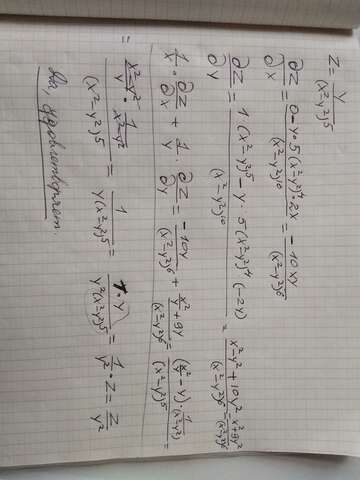 z = y/(x²-y²)⁵
∂z/∂x = (0 - y·5(x²-y²)⁴·2x)/(x²-y²)¹⁰ = -10xy/(x²-y²)⁶
∂z/∂y = (1(x²-y²)⁵ - y·5(x²-y²)⁴(-2y))/(x²-y²)¹⁰ = (x²-y²+10y²)/(x²-y²)⁶ = (x²+9y²)/(x²-y²)⁶
1/x · ∂z/∂x + 1/y · ∂z/∂y = -10y/(x²-y²)⁶ + (x²/y+9y)/(x²-y²)⁶ = (x²/y - y) · 1/(x²-y²) / (x²-y²)⁵ =
= (x²-y²)/y · 1/(x²-y²) / (x²-y²)⁵ = 1/(y(x²-y²)⁵) = 1·y/(y²(x²-y²)⁵) = 1/y² · z = z/y²
Да, удовлетворяет.